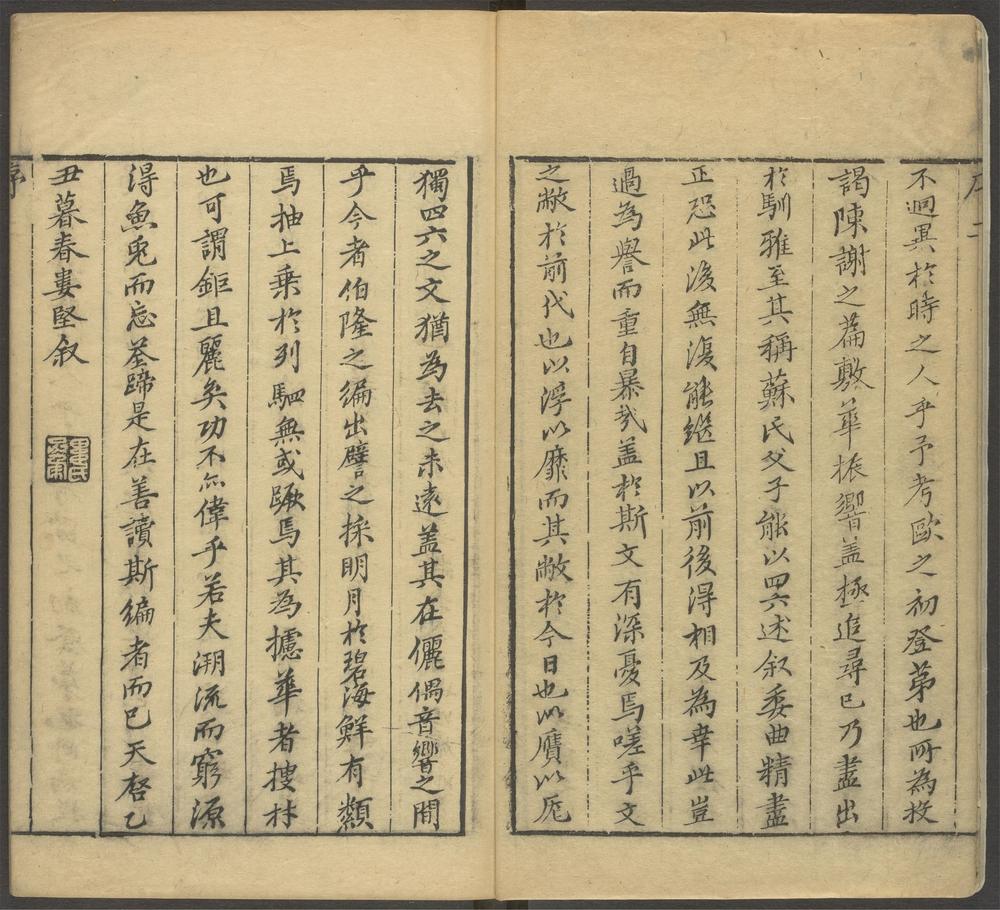 不迥異於時之人乎予考歐之初登第也所為投
謁陳謝之篇敷華振響盖極追尋已乃盡出
於馴雅至其稱蘇氏父子能以四六述叙委曲精盡
正恐此後無復能繼且以前後得相及為幸此豈
過為譽而重自暴哉盖於斯文有深憂焉嗟乎文
之敝於前代也以浮以靡而其敝於今日也以贗以厖
獨四六之文猶為去之未遠盖其在儷偶音響之間
乎今者伯隆之編出譬之採明月於碧海鮮有纇
焉抽上乗於列駟無或蹶焉其為攄華者搜材
也可謂鉅且麗矣功不亦偉乎若夫溯流而窮源
得魚兎而忘筌蹄是在善讀斯編者而已天啓乙
丑暮春婁堅叙
序